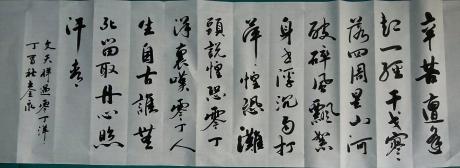 辛苦遭逢
起一经干戈寥
落四周星山河
破碎风飘絮
身世浮沉雨打
萍惶恐滩
头说惶恐零丁
洋里叹零丁人
生自古谁无
死留取丹心照
汗青
文天祥过零丁洋
丁酉秋